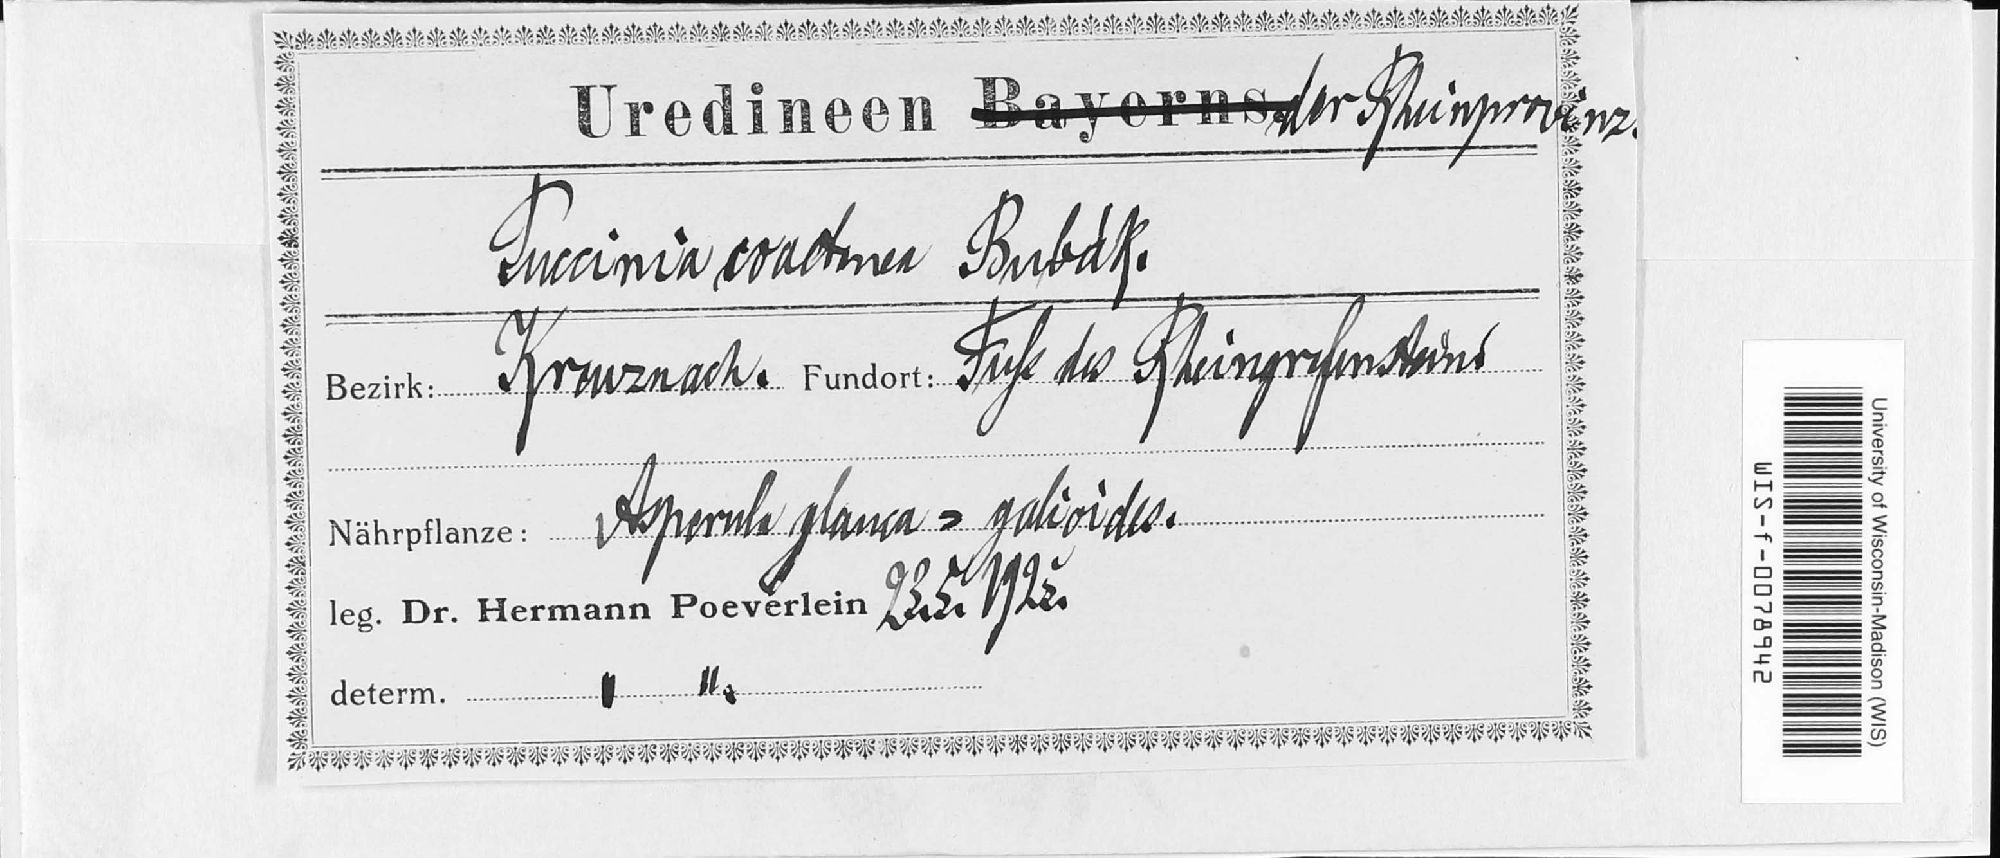 Uredineen Bayerns der Rheinprovinz.
Puccinia coactanea Bubák.
Bezirk: Kreuznach. Fundort: Fuß des Rheingrafensteins
Nährpflanze: Asperula glauca = galioides.
leg. Dr. Hermann Poeverlein 23.5. 1925.
determ. " ".
University of Wisconsin-Madison (WIS)
WIS-f-0078942